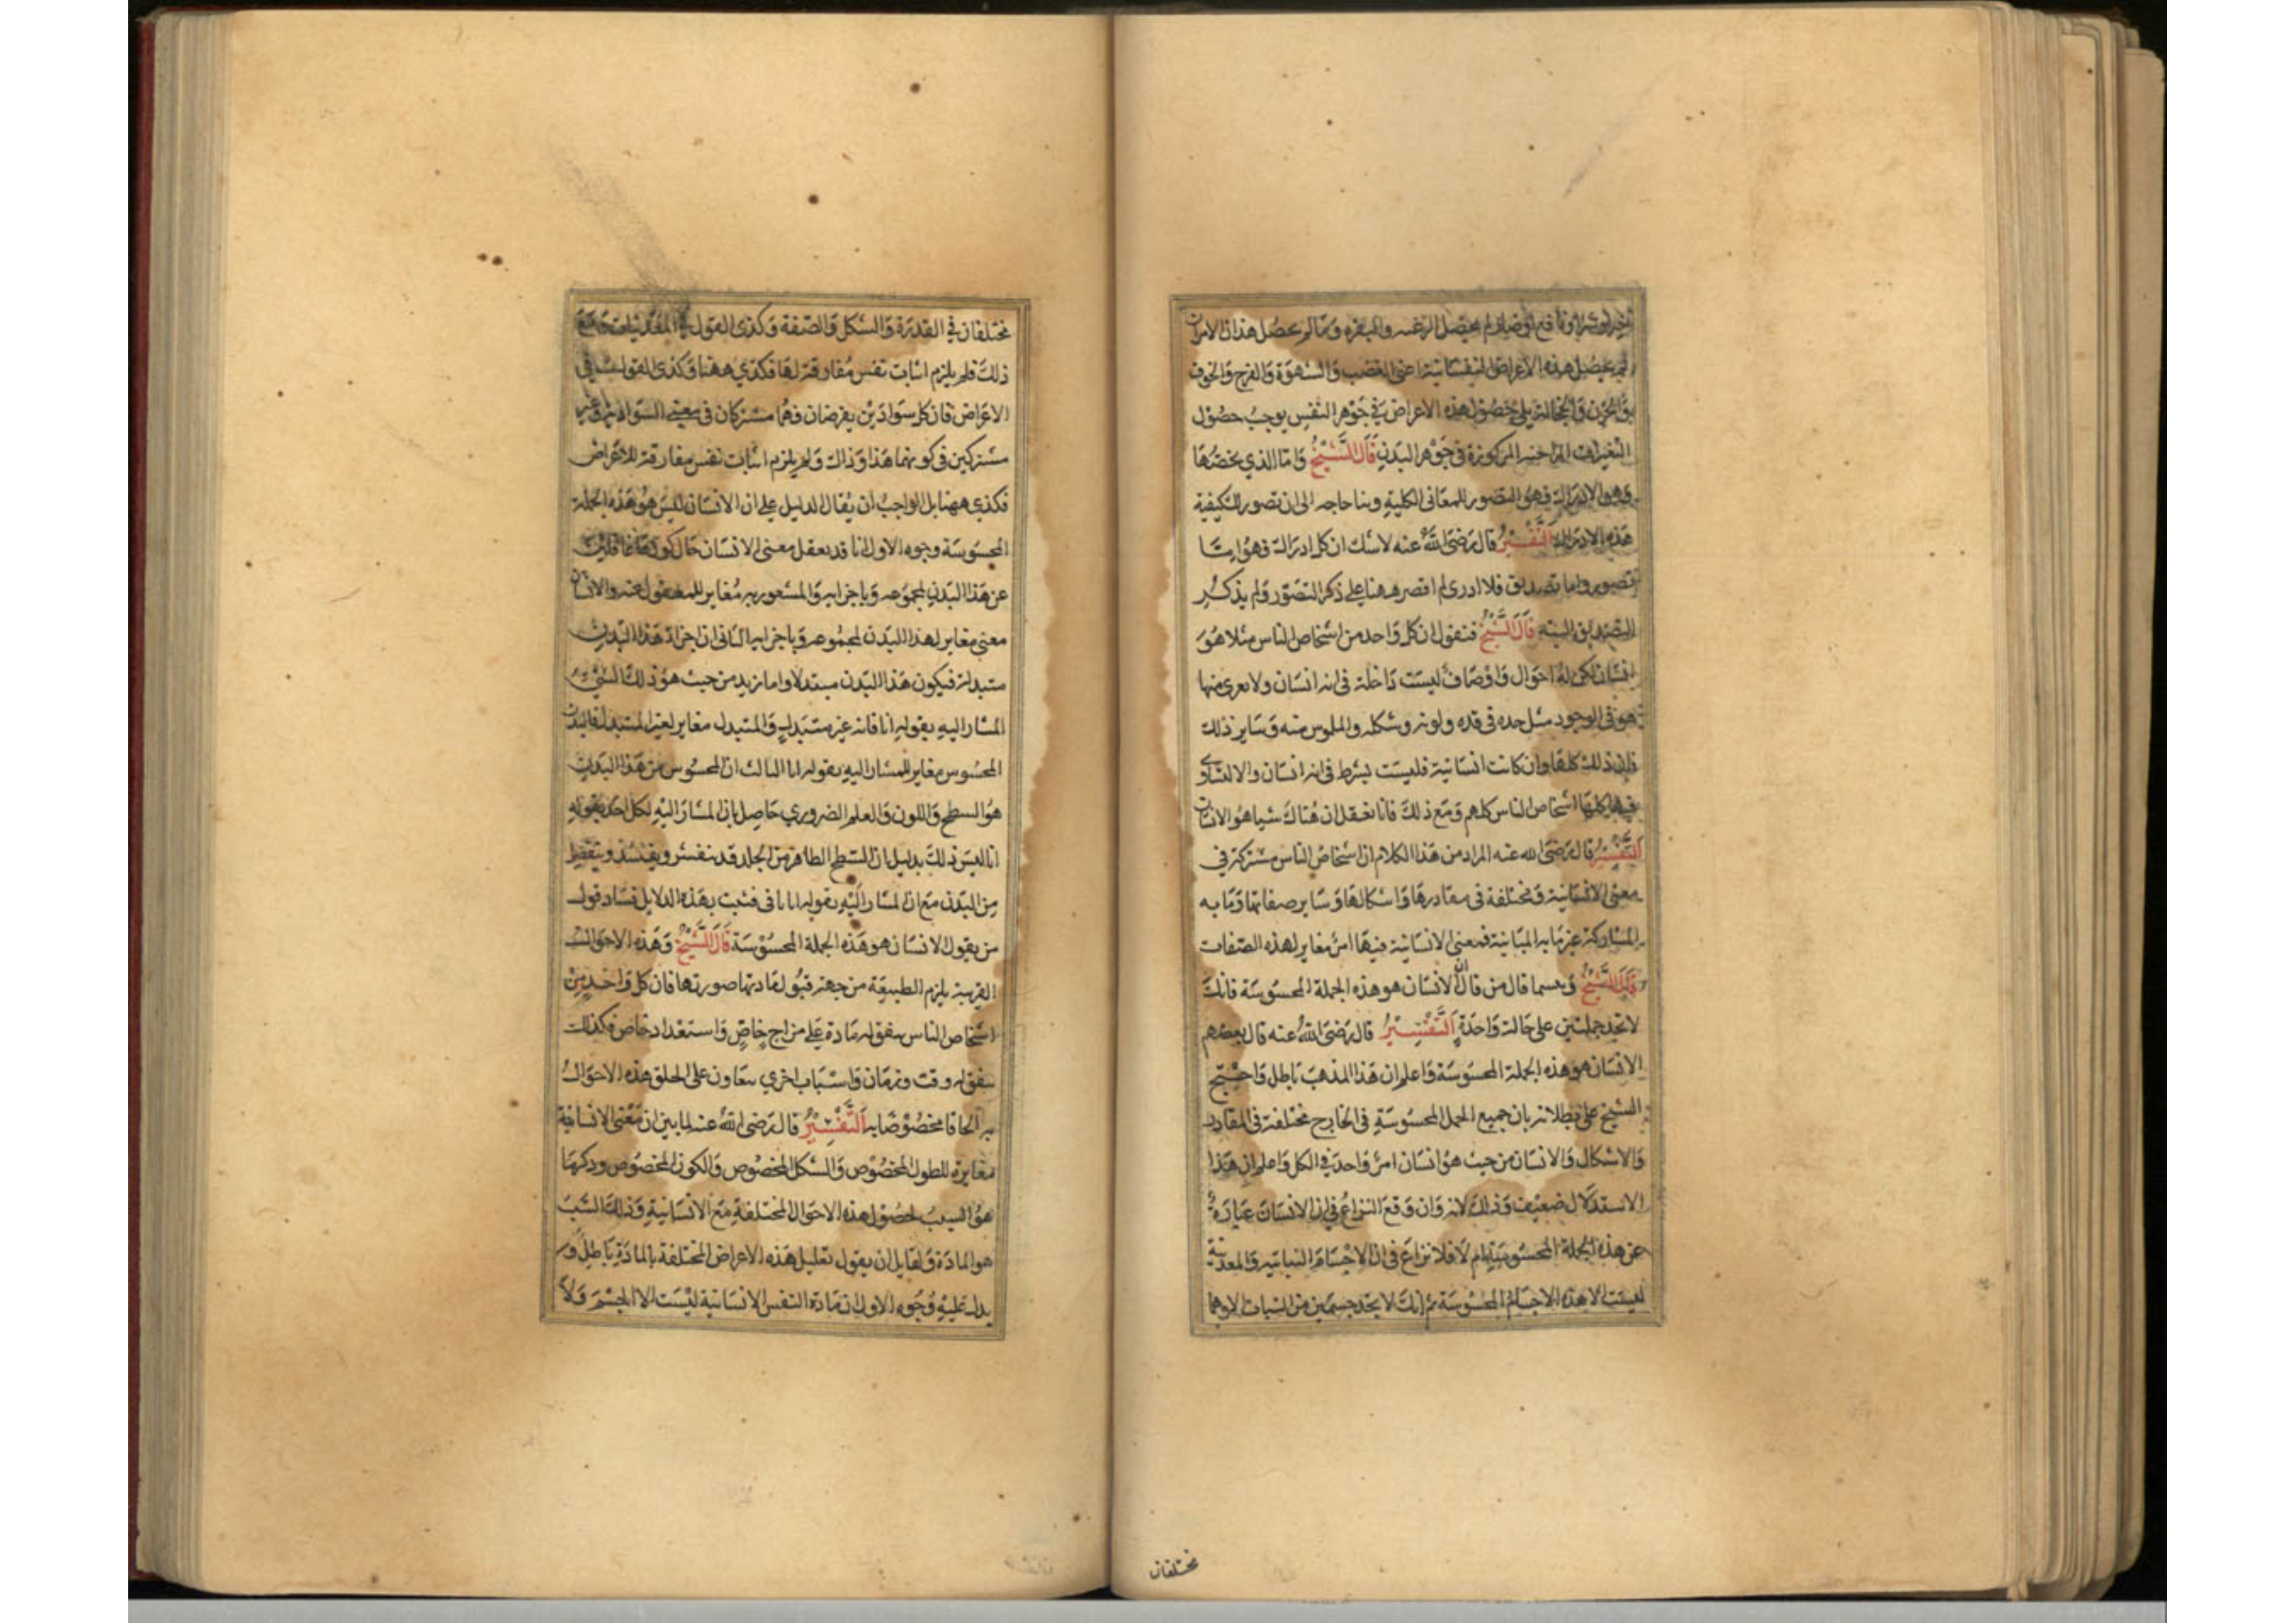 خيرا او شرا او نافع او ضار لم يحصل الرغبه والنفره ومالم يحصل هذان الامران
لم يحصل هذه الاعراض النفسانية اعنى الغضب والشهوة والفرح والخوف
والحزن والخجالة بلى حصول هذه الاعراض في جوهر النفس يوجب حصول
التغيرات المزاجيه المركوزة في جوهر البدن قال الشيخ واما الذي يخصها
وهو الادراك فهو التصور للمعانى الكلية وبنا حاجه الى ان نصور لك كيفية
هذه الادراك التفسير قال رضى الله عنه لاشك ان كل ادراك فهو اما
تصور واما تصديق فلا ادرى لم اقصر ههنا على ذكر التصور ولم يذكر
التصديق البته قال الشيخ فنقول ان كل واحد من اشخاص الناس مثلا هو
انسان لكن له احوال واوصاف ليست داخلة فى انه انسان ولا يعرى منها
هو فى الوجود مثل حده فى قده ولونه وشكله والملموس منه وساير ذلك
فان ذلك كلها وان كانت انسانية فليست بشرط فى انه انسان والا لتساوى
فيها كلها اشخاص الناس كلهم ومع ذلك فانا نعقل ان هناك شيا هو الانسان
التفسير قال رضى الله عنه المراد من هذا الكلام ان اشخاص الناس مشتركة في
معنى الانسانية ومختلفة فى مقادرها واشكالها وساير صفاتها وما به
المشاركة غير ما به المباينة فمعنى الانسانية فيها امر مغاير لهذه الصفات
قال الشيخ وبسما قال من قال ان الانسان هو هذه الجملة المحسوسة فانك
لا تجد جملتين على حالة واحدة التفسير قال رضى الله عنه قال بعضهم
الانسان هو هذه الجملة المحسوسة واعلم ان هذا المذهب باطل واحتج
الشيخ على بطلانه بان جميع الجمل المحسوسة فى الخارج مختلفة فى المقادر
والاشكال والانسان من حيث هو انسان امر واحد في الكل واعلم ان هذا
الاستدلال ضعيف وذلك لانه وان وقع النزاع في ان الانسان عبارة
عن هذه الجملة المحسوسة ام لا فلا نزاع فى ان الاجسام النباتيه والمعدنية
ليست الا هذه الاجسام المحسوسة ثم انك لا تجد جسمين من النبات الا وهما
مختلفان
مختلفان في القدرة والشكل والصفة وكذى القول في المعدنيات ومع
ذلك فلم يلزم اثبات نفس مفارقة لها فكذي ههنا وكذى القول في
الاعراض فان كل سوادين يفرضان فهما مشتركان فى معنى السوادية وغير
مشتركين في كونهما هذا وذاك ولم يلزم اثبات نفس مفارقة للاعراض
فكذى ههنا بل الواجب ان يقال الدليل على ان الانسان ليس هو هذه الجملة
المحسوسة وجوه الاول انا قد نعقل معنى الانسان حال كوننا غافلين
عن هذا البدن بمجموعه وباجزايه والمشعور به مغاير للمغفول عنه والانسان
معنى مغاير لهذا البدن بمجموعه وباجزايه الثانى ان اجزاء هذا البدن
متبدلة فيكون هذا البدن متبدلا واما زيد من حيث هو ذلك الشئ
المشار اليه بقوله انا فانه غير متبدل والمتبدل مغاير لغير المتبدل فالبدن
المحسوس مغاير للمشار اليه بقوله انا الثالث ان المحسوس من هذا البدن
هو السطح واللون والعلم الضروري حاصل بان المشار اليه لكل احد بقوله
انا ليس ذلك بدليل ان السطح الظاهر من الجلد قد ينقشر
من البدن مع ان المشار اليه بقوله انا باقى فثبت بهذه الدلايل فساد قول
من يقول الانسان هو هذه الجملة المحسوسة قال الشيخ وهذه الاحوال
القريبة يلزم الطبيعة من جهة قبول مادتها صورتها فان كل واحد من
اشخاص الناس يتفق له مادة على مزاج خاص واستعداد خاص فكذلك
يتفق له وقت وزمان واسباب اخرى تعاون على الحاق هذه الاحوال
به الحاقا مخصوصا به التفسير قال رضى الله عنه لما بين ان معنى الانسانية
مغايرة للطول المخصوص والشكل المخصوص والكون المخصوص وذكر ما
هو السبب لحصول هذه الاحوال المختلفة مع الانسانية وذلك السبب
هو المادة ولقايل ان يقول تعليل هذه الاعراض المختلفة بالمادة باطل و
يدل عليه وجوه الاول ان مادة النفس الانسانية ليست الا الجسم ولا